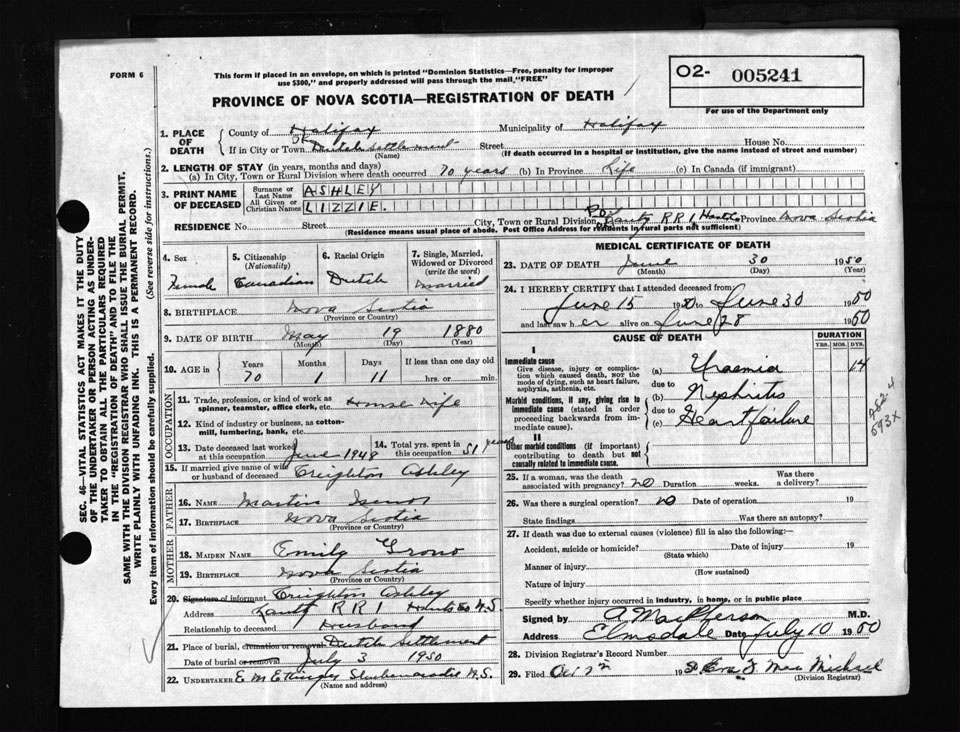 FORM 6
This form if placed in an envelope, on which is printed "Dominion Statistics—Free, penalty for improper
use $300," and properly addressed will pass through the mail, "FREE"
PROVINCE OF NOVA SCOTIA—REGISTRATION OF DEATH
O2- 005241
For use of the Department only
1. PLACE OF DEATH
County of Halifax Municipality of Halifax
If in City or Town Dutch Settlement Street House No.
(Name) (If death occurred in a hospital or institution, give the name instead of street and number)
2. LENGTH OF STAY (in years, months and days)
(a) In City, Town or Rural Division where death occurred 70 years (b) In Province Life (c) In Canada (if immigrant)
3. PRINT NAME OF DECEASED
Surname or Last Name ASHLEY
All Given or Christian Names LIZZIE.
RESIDENCE No. Street City, Town or Rural Division Lantz RR1 Hants Province Nova Scotia
(Residence means usual place of abode. Post Office Address for residents in rural parts not sufficient)
4. Sex Female
5. Citizenship (Nationality) Canadian
6. Racial Origin Dutch
7. Single, Married, Widowed or Divorced (write the word) Married
8. BIRTHPLACE Nova Scotia
(Province or Country)
9. DATE OF BIRTH May 19 1880
(Month) (Day) (Year)
10. AGE in Years Months Days If less than one day old
70 1 11 hrs. or min.
OCCUPATION
11. Trade, profession, or kind of work as spinner, teamster, office clerk, etc. House Wife
12. Kind of industry or business, as cotton-mill, lumbering, bank, etc.
13. Date deceased last worked at this occupation June 1948
14. Total yrs. spent in this occupation 51 years
15. If married give name of wife or husband of deceased Creighton Ashley
FATHER
16. NAME Martin Isnor
17. BIRTHPLACE Nova Scotia
(Province or Country)
MOTHER
18. MAIDEN NAME Emily Grono
19. BIRTHPLACE Nova Scotia
(Province or Country)
20. Signature of informant Creighton Ashley
Address Lantz RR1 Hants Co N.S
Relationship to deceased Husband
21. Place of burial, cremation or removal Dutch Settlement
Date of burial or removal July 3 1950
22. UNDERTAKER E M Ettinger Shubenacadie N.S.
(Name and address)
MEDICAL CERTIFICATE OF DEATH
23. DATE OF DEATH June 30 1950
(Month) (Day) (Year)
24. I HEREBY CERTIFY that I attended deceased from
June 15 1950 to June 30 1950
and last saw her alive on June 28 1950
CAUSE OF DEATH
DURATION
YRS. MOS. DYS.
I
Immediate cause
Give disease, injury or complication which caused death, NOT the mode of dying, such as heart failure, asphyxia, asthenia, etc.
(a) Uraemia 14
due to
Morbid conditions, if any, giving rise to immediate cause (stated in order proceeding backwards from immediate cause).
(b) Nephritis
due to
(c) Heart failure
593X
II
Other morbid conditions (if important) contributing to death but not causally related to immediate cause.
25. If a woman, was the death associated with pregnancy? no Duration weeks. Was there a delivery?
26. Was there a surgical operation? no Date of operation 19
State findings Was there an autopsy?
27. If death was due to external causes (violence) fill in also the following:—
Accident, suicide or homicide? Date of injury 19
(State which)
Manner of injury
(How sustained)
Nature of injury
Specify whether injury occurred in industry, in home, or in public place
Signed by A MacPherson M.D.
Address Elmsdale Date July 10 1950
28. Division Registrar's Record Number
29. Filed Oct 195 MacMichael
(Division Registrar)
SEC. 46—VITAL STATISTICS ACT MAKES IT THE DUTY
OF THE UNDERTAKER OR PERSON ACTING AS UNDER-
TAKER TO OBTAIN ALL THE PARTICULARS REQUIRED
IN THE "REGISTRATION OF DEATH" AND TO FILE THE
SAME WITH THE DIVISION REGISTRAR WHO SHALL ISSUE THE BURIAL PERMIT.
WRITE PLAINLY WITH UNFADING INK. THIS IS A PERMANENT RECORD.
Every item of information should be carefully supplied. (See reverse side for instructions.)